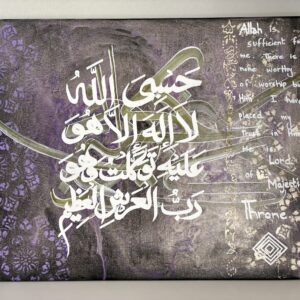 حسبي الله
لا إله إلا هو
عليه توكلت وهو
رب العرش العظيم
Allah is
sufficient for
me. There is
none worthy
of worship but
Him. I have
placed my
Trust in Him
He is
Lord
of
Majestic
Throne